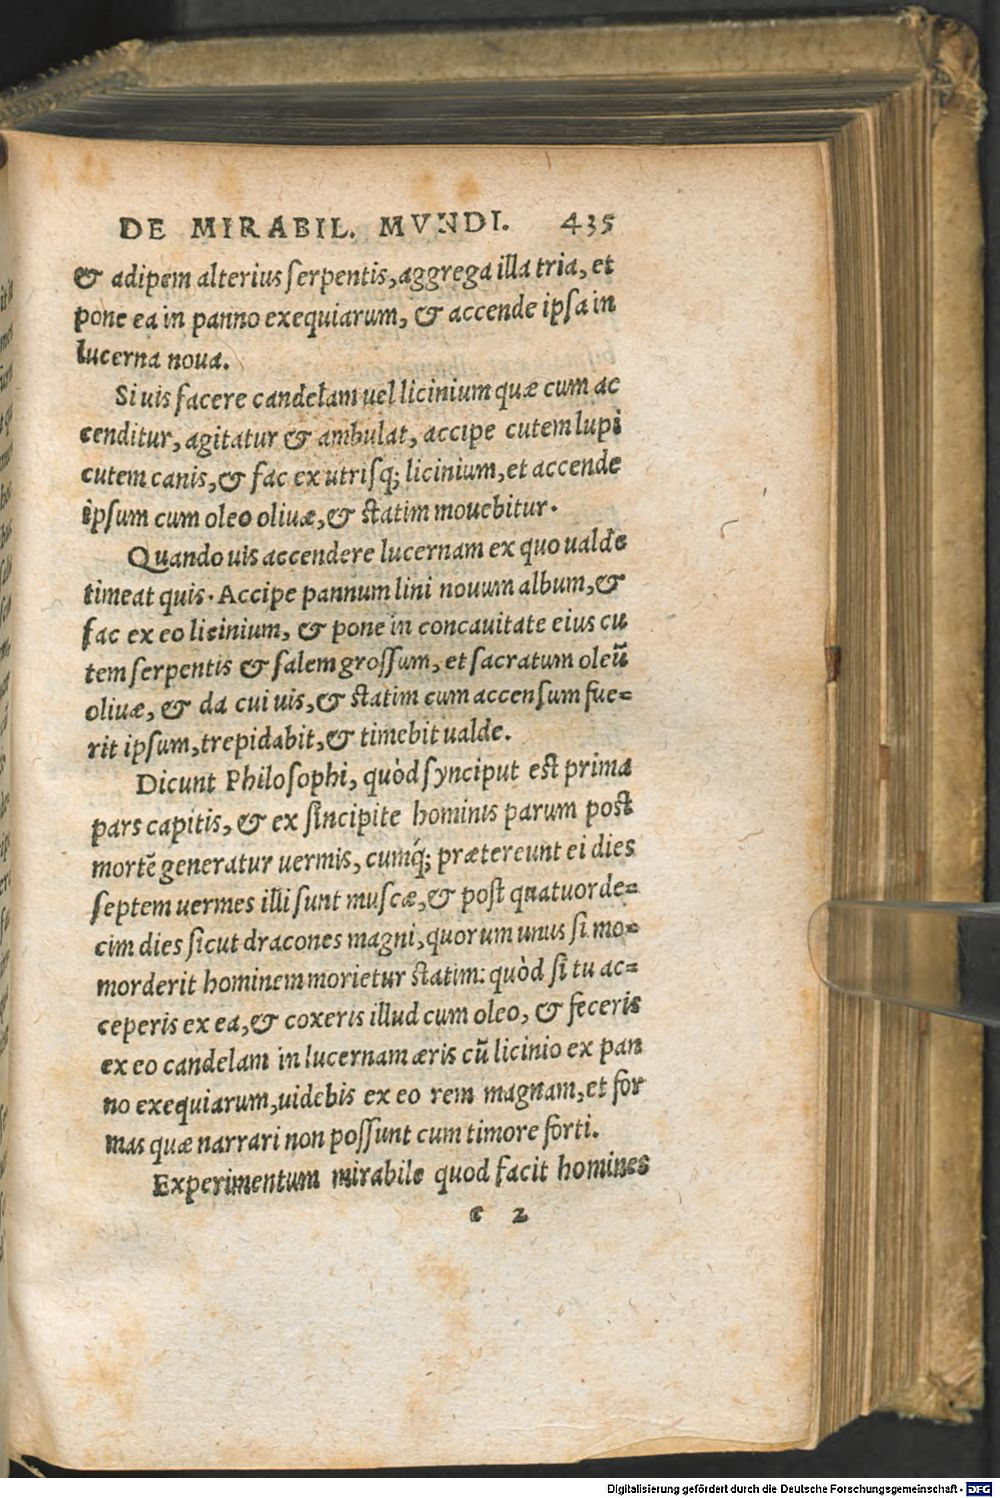 DE MIRABIL. MVNDI. 435
& adipem alterius ſerpentis, aggrega illa tria, et
pone ea in panno exequiarum, & accende ipſa in
lucerna noua.
Si uis facere candelam uel licinium quæ cum ac
cenditur, agitatur & ambulat, accipe cutem lupi
cutem canis, & fac ex utriſq; licinium, et accende
ipſum cum oleo oliuæ, & ſtatim mouebitur.
Quando uis accendere lucernam ex quo ualde
timeat quis. Accipe pannum lini nouum album, &
fac ex eo licinium, & pone in concauitate eius cu
tem ſerpentis & ſalem groſſum, et ſacratum oleū
oliuæ, & da cui uis, & ſtatim cum accenſum fue=
rit ipſum, trepidabit, & timebit ualde.
Dicunt Philoſophi, quòd ſynciput eſt prima
pars capitis, & ex ſincipite hominis parum poſt
mortē generatur uermis, cumq́; prætereunt ei dies
ſeptem uermes illi ſunt muſcæ, & poſt quatuorde=
cim dies ſicut dracones magni, quorum unus ſi mo=
morderit hominem morietur ſtatim: quòd ſi tu ac=
ceperis ex ea, & coxeris illud cum oleo, & feceris
ex eo candelam in lucernam æris cū licinio ex pan
no exequiarum, uidebis ex eo rem magnam, et for
mas quæ narrari non poſſunt cum timore forti.
Experimentum mirabile quod facit homines
e 2
Digitalisierung gefördert durch die Deutsche Forschungsgemeinschaft - DFG